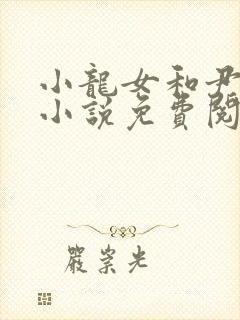 小龍女和尹
小說免費閱
嚴崇光